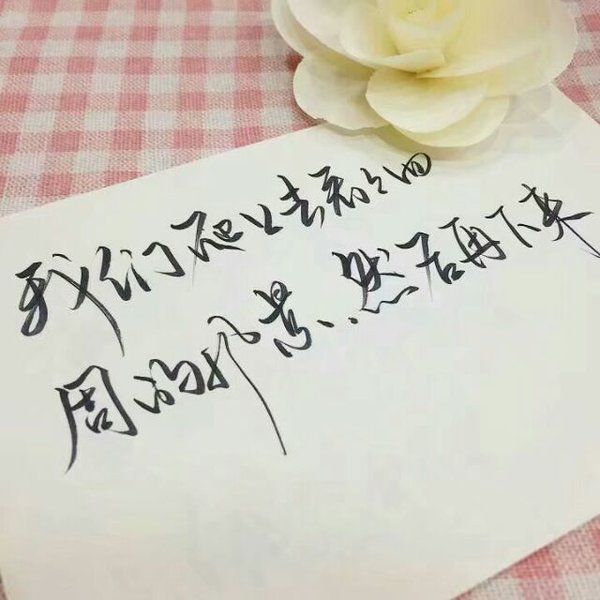 我们爬上去看看四
周的风景.然后再下来